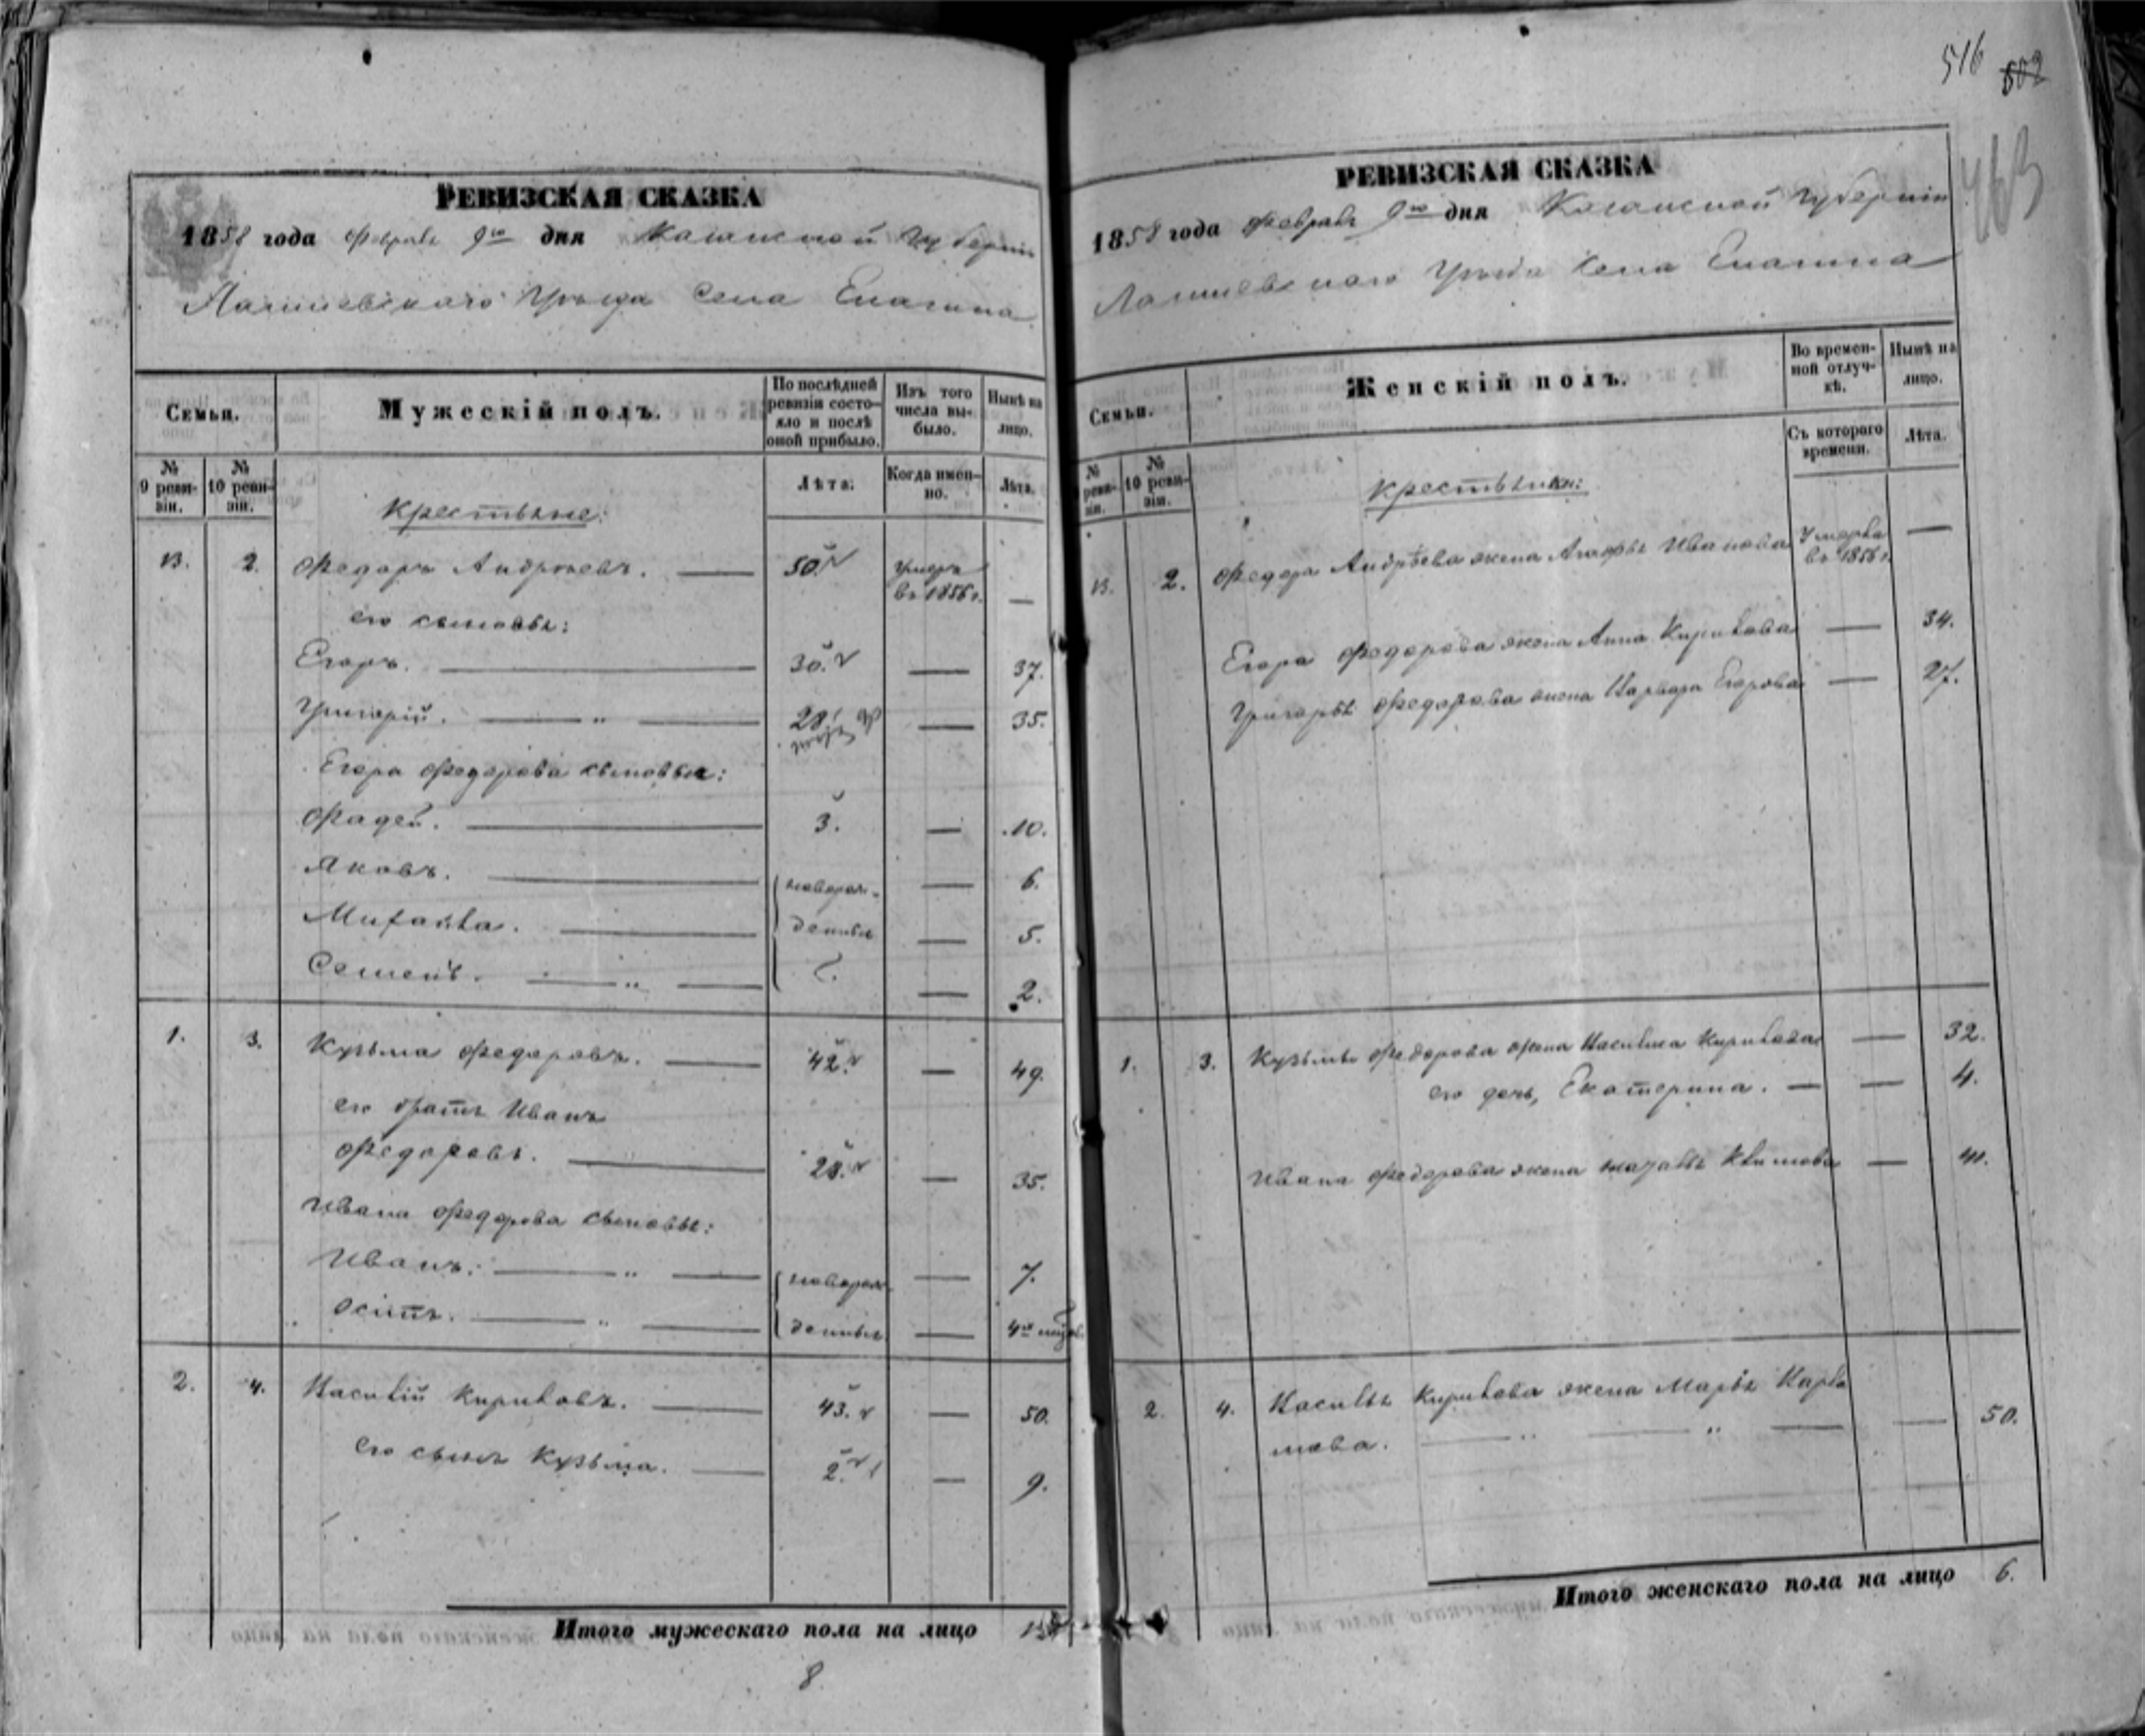 РЕВИЗСКАЯ СКАЗКА
1858 года Февраля 9го дня Казанской Губерніи
Лаишевскаго Уѣзда Села Елагина
Семьи.
Мужескій полъ.
По послѣдней ревизіи состояло и послѣ оной прибыло.
Изъ того числа выбыло.
Нынѣ на лицо.
№ 9 ревизіи.
№ 10 ревизіи.
Лѣта.
Когда именно.
Лѣта.
Крестьяне:
13. 2. Федоръ Андреевъ. — 50. Умеръ въ 1856 г. —
его сыновья:
Егоръ. — 30. — 37.
Григорій. — " — 28. — 35.
Егора Федорова сыновья:
Фадей. — 3. — 10.
Яковъ. — новорож- — 6.
Михайла. — денные — 5.
Семенъ. — " — — 2.
1. 3. Кузьма Федоровъ. — 42. — 49.
его братъ Иванъ
Федоровъ. — 28. — 35.
Ивана Федорова сыновья:
Иванъ. — " — новорож — 7.
Осипъ. — " — денные — 4х
2. 4. Василій Кириловъ. — 43. — 50.
его сынъ Кузьма. — 2. — 9.
Итого мужескаго пола на лицо
8
516 502
463
РЕВИЗСКАЯ СКАЗКА
1858 года Февраля 9го дня Казанской Губерніи
Лаишевскаго Уѣзда Села Елагина
Семьи.
Женскій полъ.
Во временной отлучкѣ.
Нынѣ на лицо.
№ ревизіи.
№ 10 ревизіи.
Съ котораго времени.
Лѣта.
Крестьянки:
13. 2. Федора Андрѣева жена Агафья Иванова Умерла въ 1856 г. —
Егора Федорова жена Анна Кирилова — 34.
Григорья Федорова жена Варвара Егорова — 27.
1. 3. Кузьмы Федорова жена Василиса Кирилова — 32.
его дочь, Екатерина. — — 4.
Ивана Федорова жена — 41.
2. 4. Василья Кирилова жена Марья
мова. — " — " — — 50.
Итого женскаго пола на лицо 6.